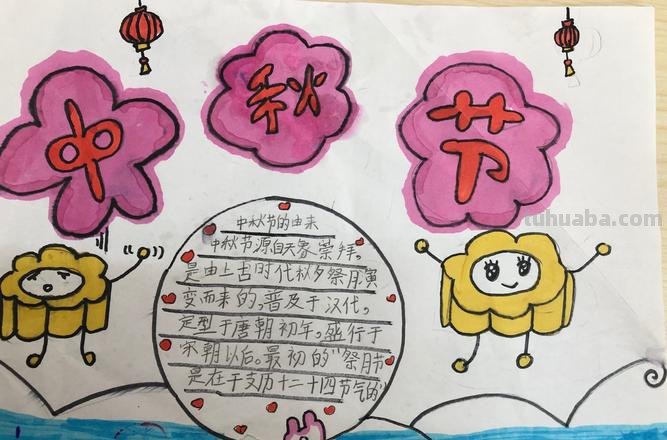 中秋节
中秋节的由来
中秋节源自天象崇拜,
是由上古时代秋夕祭月演
变而来的,普及于汉代,
定型于唐朝初年,盛行于
宋朝以后。最初的"祭月节"
是在干支历二十四节气的"
tuhuaba.com